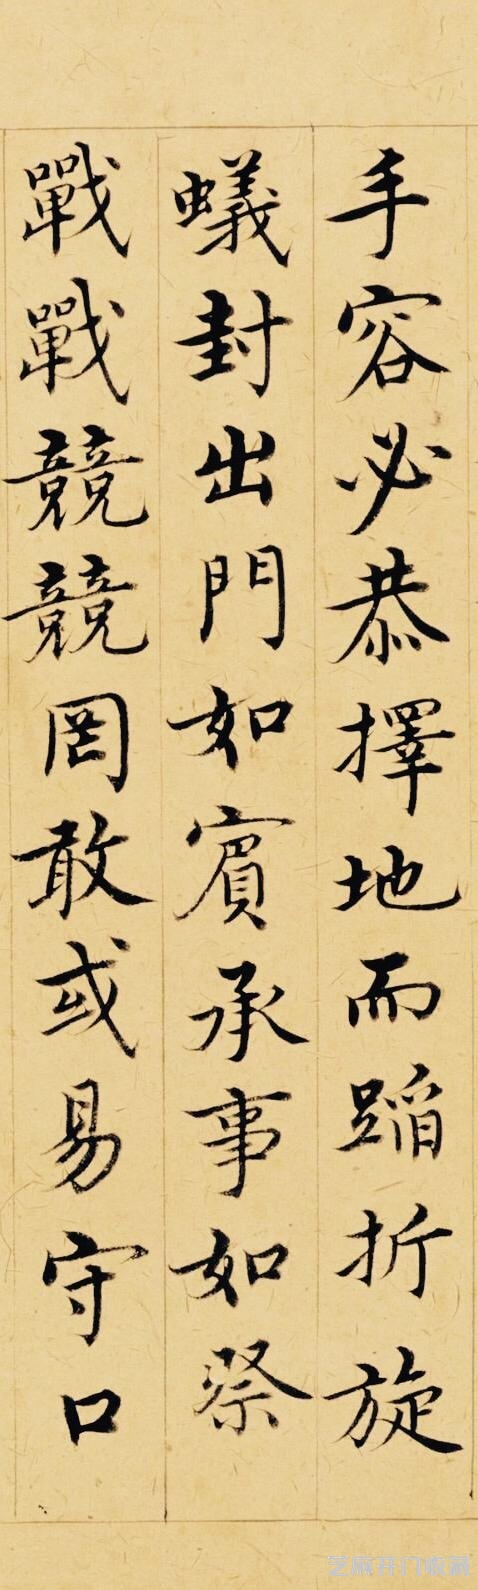 手容必恭擇地而蹈折旋
蟻封出門如賓承事如祭
戰戰競競罔敢或易守口
芝麻开门收藏